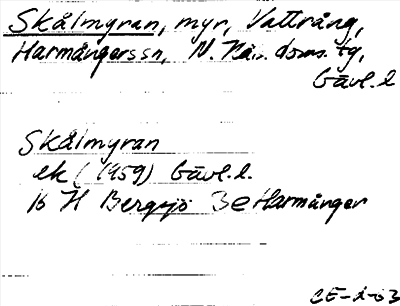 Skålmyran, myr, Vattrång,
Harmångerssn, N. Hä... doms. tg,
Gävl. l
Skålmyran
ek (1959) Gävl. l.
16 H Bergsjö 3e Harmånger